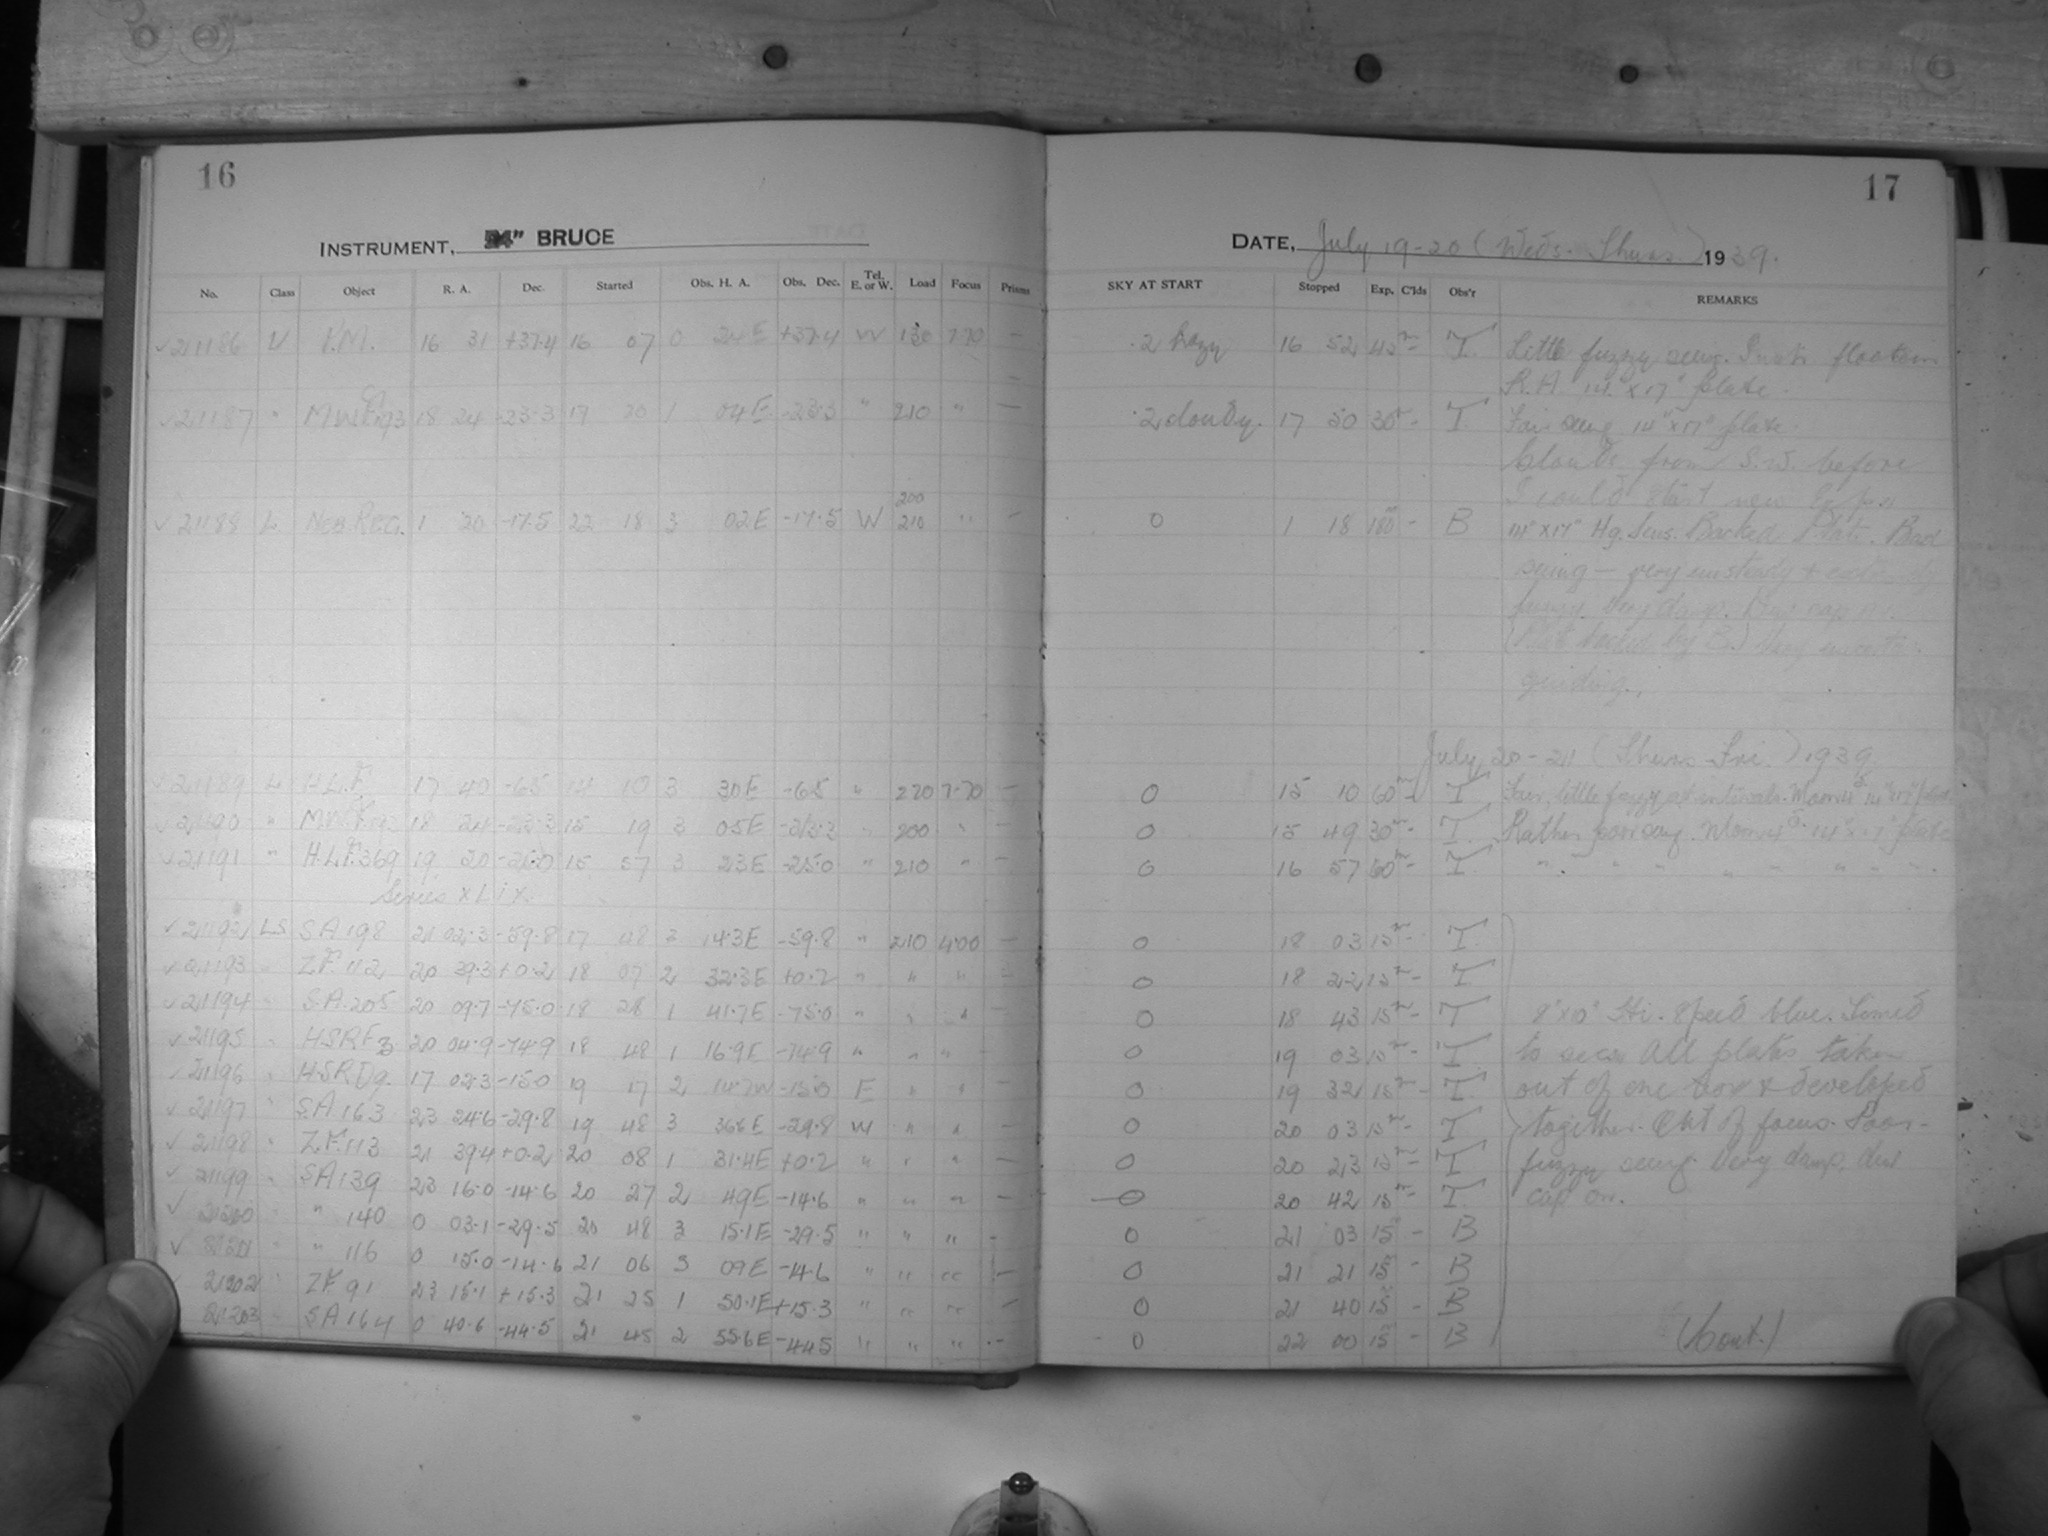 16
INSTRUMENT, 24" BRUCE
No. Class Object R. A. Dec. Started Obs. H. A. Obs. Dec. Tel. E. or W. Load Focus Prisms
21186 16 31 +37.4 16 07 0 24E +37.4 W 130 7.70 —
21187 " 18 24 -23.3 17 20 1 04E -23.3 " 210 " —
200
21188 L 1 20 -17.5 22 18 3 02E -17.5 W 210 " —
21189 17 40 -65 14 10 3 30E -65 " 220 7.70 —
21190 " 18 24 -23.3 15 19 3 05E -23.3 " 200 " —
21191 " H.L.F. 369 19 20 -25.0 15 57 3 23E -25.0 " 210 " —
Series XLIX.
21192 LS SA 198 21 02.3 -59.8 17 48 3 14.3E -59.8 " 210 4.00 —
21193 " Z.F. 112 20 39.3 +0.2 18 07 2 32.3E +0.2 " " " —
21194 " S.A. 205 20 09.7 -75.0 18 28 1 41.7E -75.0 " " " —
21195 " 20 04.9 -74.9 18 48 1 16.9E -74.9 " " " —
21196 " 17 02.3 -15.0 19 17 2 14.7W -15.0 E " " —
21197 " SA 163 23 24.6 -29.8 19 48 3 36.6E -29.8 W " " —
21198 " Z.F. 113 21 39.4 +0.2 20 08 1 31.4E +0.2 " " " —
21199 " SA 139 23 16.0 -14.6 20 27 2 49E -14.6 " " " —
21200 " " 140 0 03.1 -29.5 20 48 3 15.1E -29.5 " " " —
21201 " " 116 0 15.0 -14.6 21 06 3 09E -14.6 " " " —
21202 " ZF 91 23 15.1 +15.3 21 25 1 50.1E +15.3 " " " —
21203 " SA 164 0 40.6 -44.5 21 45 2 55.6E -44.5 " " " —
17
DATE, July 19-20 (Weds. Thurs.) 1939.
SKY AT START Stopped Exp. C'lds Obs'r REMARKS
2 hazy 16 52 45m – T. Little fuzzy seeing.
R.A. 14" x 17" plate.
2 cloudy. 17 50 30m – T Fair seeing 14" x 17" plate.
Clouds from S.W. before
I could start new
0 1 18 180m – B 14" x 17" Hg. Sens. Backed Plate. Bad
seeing – very unsteady +
fuzzy. Very damp. Dew cap on.
guiding.
July 20-21 (Thurs-Fri.) 1939
0 15 10 60m – T Fair, little fuzzy at intervals.
0 15 49 30m – T. Rather poor seeing.
0 16 57 60m – T " " " " " " " "
0 18 03 15m – T
0 18 22 15m – T
0 18 43 15m – T 8"x10" Hi. Speed blue. Timed
0 19 03 15m – T to secs. All plates taken
0 19 32 15m – T out of one box & developed
0 20 03 15m – T together. Out of focus. Poor-
0 20 23 15m – T fuzzy seeing. Very damp, dew
0 20 42 15m – T. cap on.
0 21 03 15m – B
0 21 21 15m – B
0 21 40 15m – B
0 22 00 15m – B (Cont.)